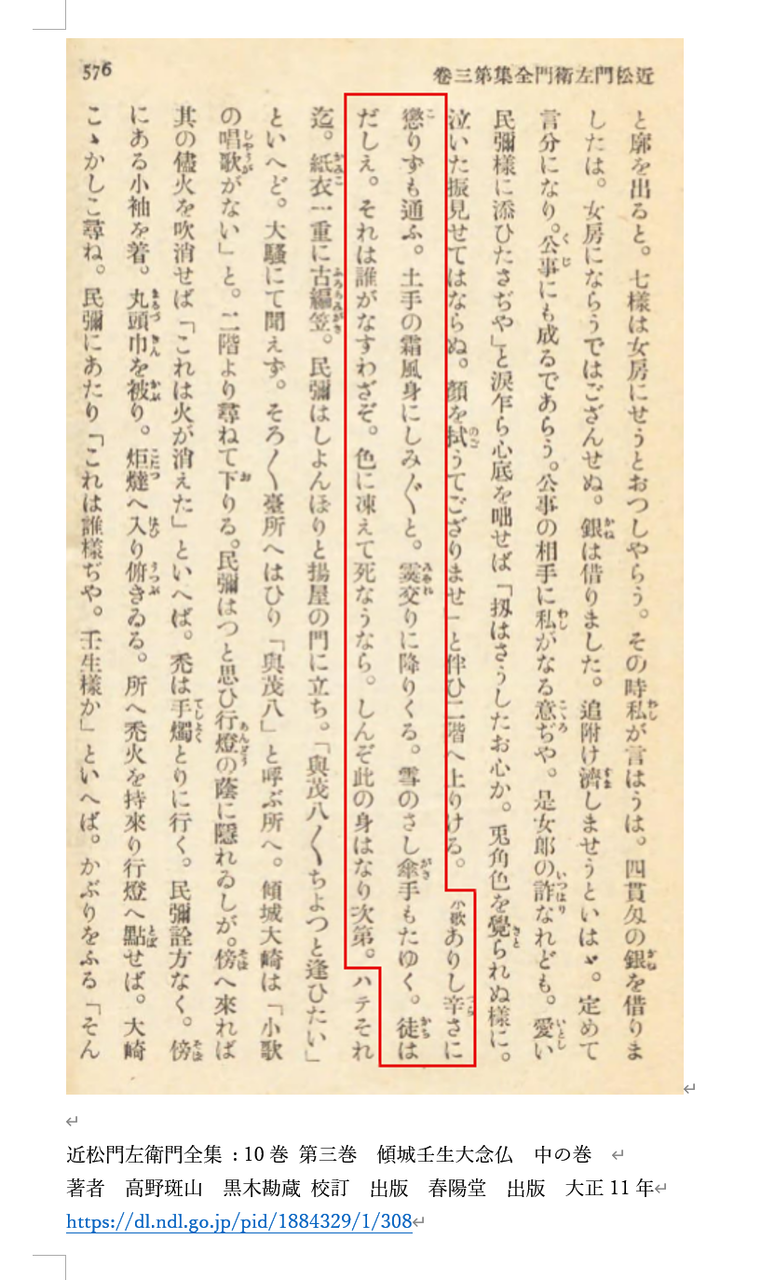 近松門左衛門全集第三卷
576
と廓を出ると。七樣は女房にせうとおつしやらう。その時私が言はうは。四貫匁の銀を借りま
したは。女房にならうではござんせぬ。銀は借りました。追附け濟しませうといはゞ。定めて
言分になり。公事にも成るであらう。公事の相手に私がなる意ぢや。是女郎の詐なれども。愛い
民彌樣に添ひたさぢや」と淚乍ら心底を咄せば「扨はさうしたお心か。兎角色を覺られぬ樣に。
泣いた振見せてはならぬ。顏を拭うてござりませ」と伴ひ二階へ上りける。小歌ありし辛さに
懲りずも通ふ。土手の霜風身にしみ〴〵と。霙交りに降りくる。雪のさし傘手もたゆく。徒は
だしえ。それは誰がなすわざぞ。色に凍えて死なうなら。しんぞ此の身はなり次第。ハテそれ
迄。紙衣一重に古編笠。民彌はしよんぼりと揚屋の門に立ち。「與茂八〳〵ちよつと逢ひたい」
といへど。大騷にて聞えず。そろ〳〵臺所へはひり「與茂八」と呼ぶ所へ。傾城大崎は「小歌
の唱歌がない」と。二階より尋ねて下りる。民彌はつと思ひ行燈の蔭に隱れゐるしが。傍へ來れば
其の儘火を吹消せば「これは火が消えた」といへば。禿は手燭とりに行く。民彌詮方なく。傍
にある小袖を着。丸頭巾を被り。炬燵へ入り俯きゐる。所へ禿火を持來り行燈へ點せば。大崎
こゝかしこ尋ね。民彌にあたり「これは誰樣ぢや。壬生樣か」といへば。かぶりをふる「そん
近松門左衛門全集 : 10巻 第三巻　傾城壬生大念仏　中の巻
著者　高野斑山　黒木勘蔵 校訂　出版　春陽堂　出版　大正 11 年
https://dl.ndl.go.jp/pid/1884329/1/308